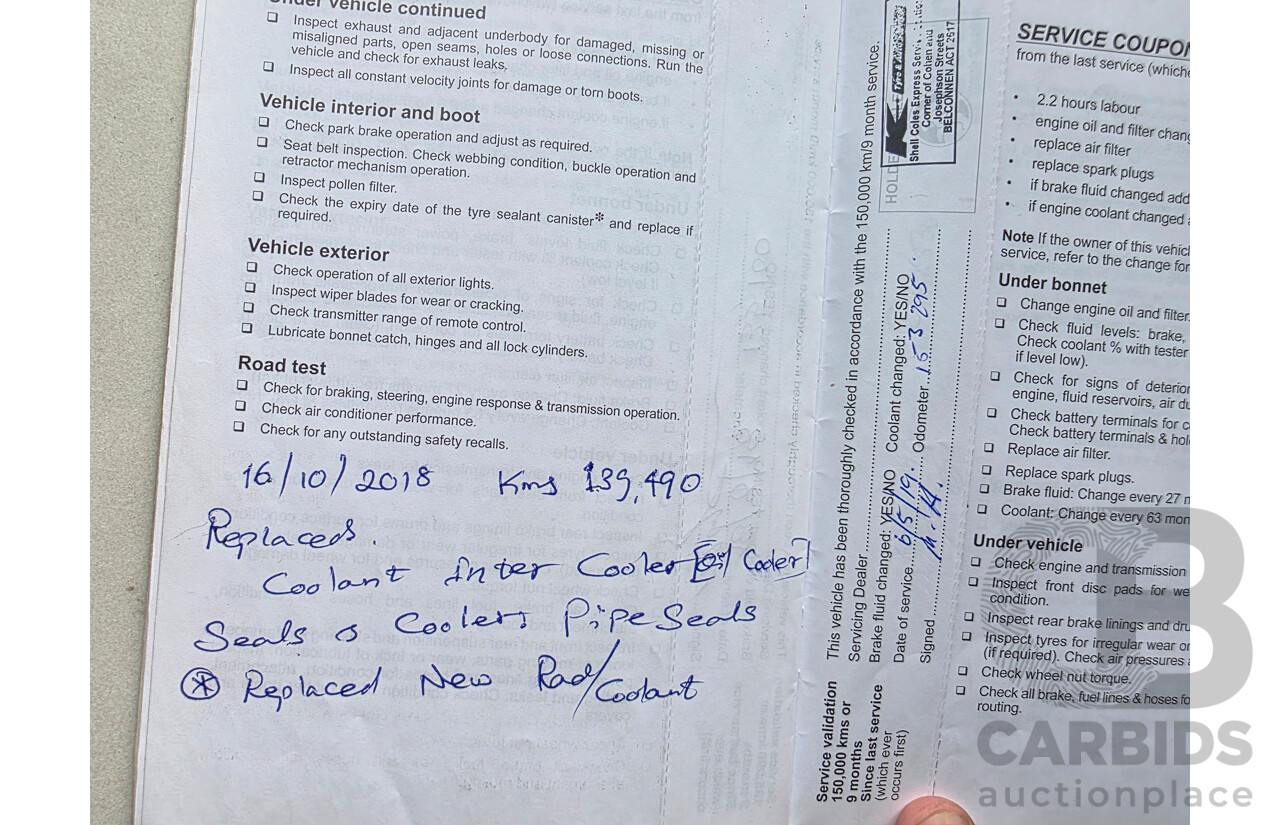 Under vehicle continued
❏ Inspect exhaust and adjacent underbody for damaged, missing or
misaligned parts, open seams, holes or loose connections. Run the
vehicle and check for exhaust leaks.
❏ Inspect all constant velocity joints for damage or torn boots.
Vehicle interior and boot
❏ Check park brake operation and adjust as required.
❏ Seat belt inspection. Check webbing condition, buckle operation and
retractor mechanism operation.
❏ Inspect pollen filter.
❏ Check the expiry date of the tyre sealant canister* and replace if
required.
Vehicle exterior
❏ Check operation of all exterior lights.
❏ Inspect wiper blades for wear or cracking.
❏ Check transmitter range of remote control.
❏ Lubricate bonnet catch, hinges and all lock cylinders.
Road test
❏ Check for braking, steering, engine response & transmission operation.
❏ Check air conditioner performance.
❏ Check for any outstanding safety recalls.
16/10/2018 Kms 139,490
Replaced.
Coolant inter Cooler [oil Cooler]
Seals & Coolers Pipe Seals
* Replaced New Rad/Coolant
Service validation
150,000 kms or
9 months
Since last service
(which ever
occurs first)
This vehicle has been thoroughly checked in accordance with the 150,000 km/9 month service.
Servicing Dealer
Brake fluid changed: YES/NO Coolant changed: YES/NO
Date of service 6/5/19. Odometer 153 295
Signed
HOLDE
Shell Coles Express Serv
Corner of Cohen and
Josephson Streets
BELCONNEN ACT 2617
SERVICE COUPON
from the last service (which
• 2.2 hours labour
• engine oil and filter chang
• replace air filter
• replace spark plugs
• if brake fluid changed add
• if engine coolant changed a
Note If the owner of this vehicl
service, refer to the change for
Under bonnet
❏ Change engine oil and filter.
❏ Check fluid levels: brake,
Check coolant % with tester
if level low).
❏ Check for signs of deterior
engine, fluid reservoirs, air du
❏ Check battery terminals for c
Check battery terminals & hol
❏ Replace air filter.
❏ Replace spark plugs.
❏ Brake fluid: Change every 27 m
❏ Coolant: Change every 63 mon
Under vehicle
❏ Check engine and transmission
❏ Inspect front disc pads for we
condition.
❏ Inspect rear brake linings and dru
❏ Inspect tyres for irregular wear or
(if required). Check air pressures a
❏ Check wheel nut torque.
❏ Check all brake, fuel lines & hoses fo
routing.
CARBIDS
auctionplace